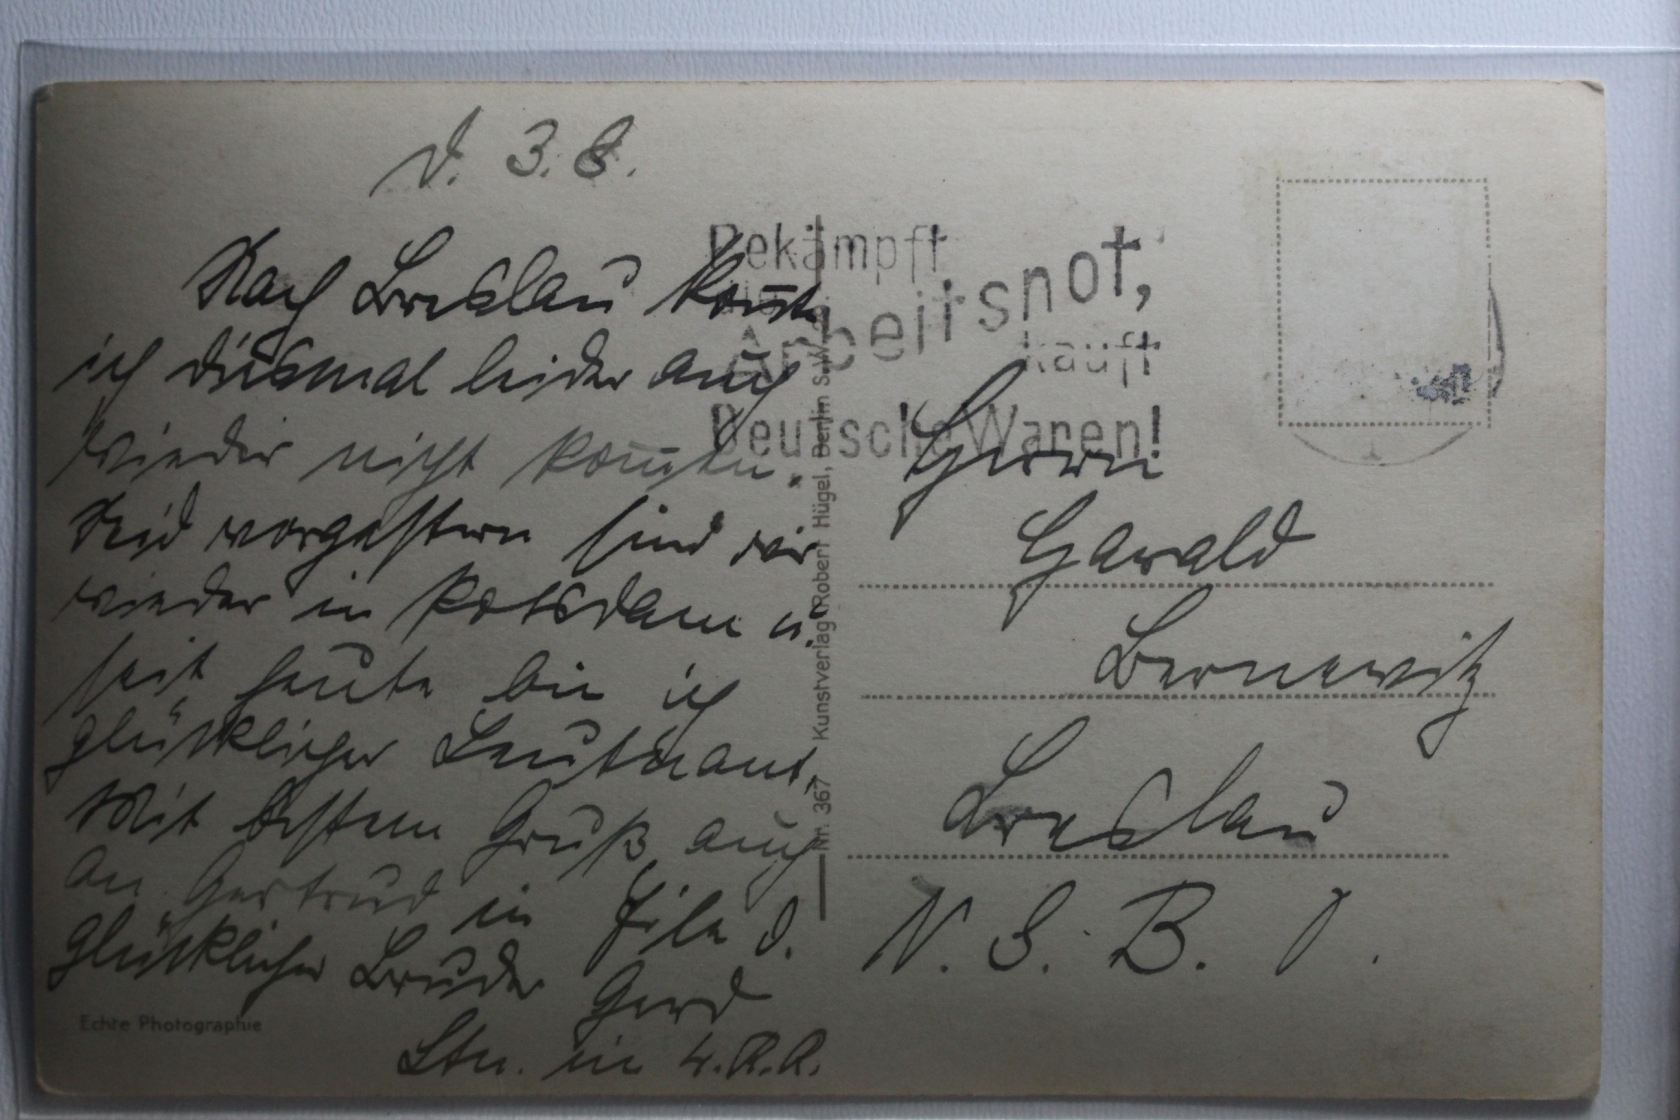 d. 3. 8.
Nach Breslau konnte
ich diesmal leider auch
wieder nicht kommen.
Seid vorgestern sind wir
wieder in Potsdam u.
seit heute bin ich
glücklicher Leutnant.
Mit bestem Gruß auch
an Gertrud in Eile d.
glücklicher Bruder Gerd
Ltn. im 4. R.R.
Echte Photographie
Nr. 367 Kunstverlag Robert Hügel, Berlin S.W.
Bekämpft
die
Arbeitsnot,
kauft
Deutsche Waren!
Herrn
Harald
Bernewitz
Breslau
N. S. B. O.